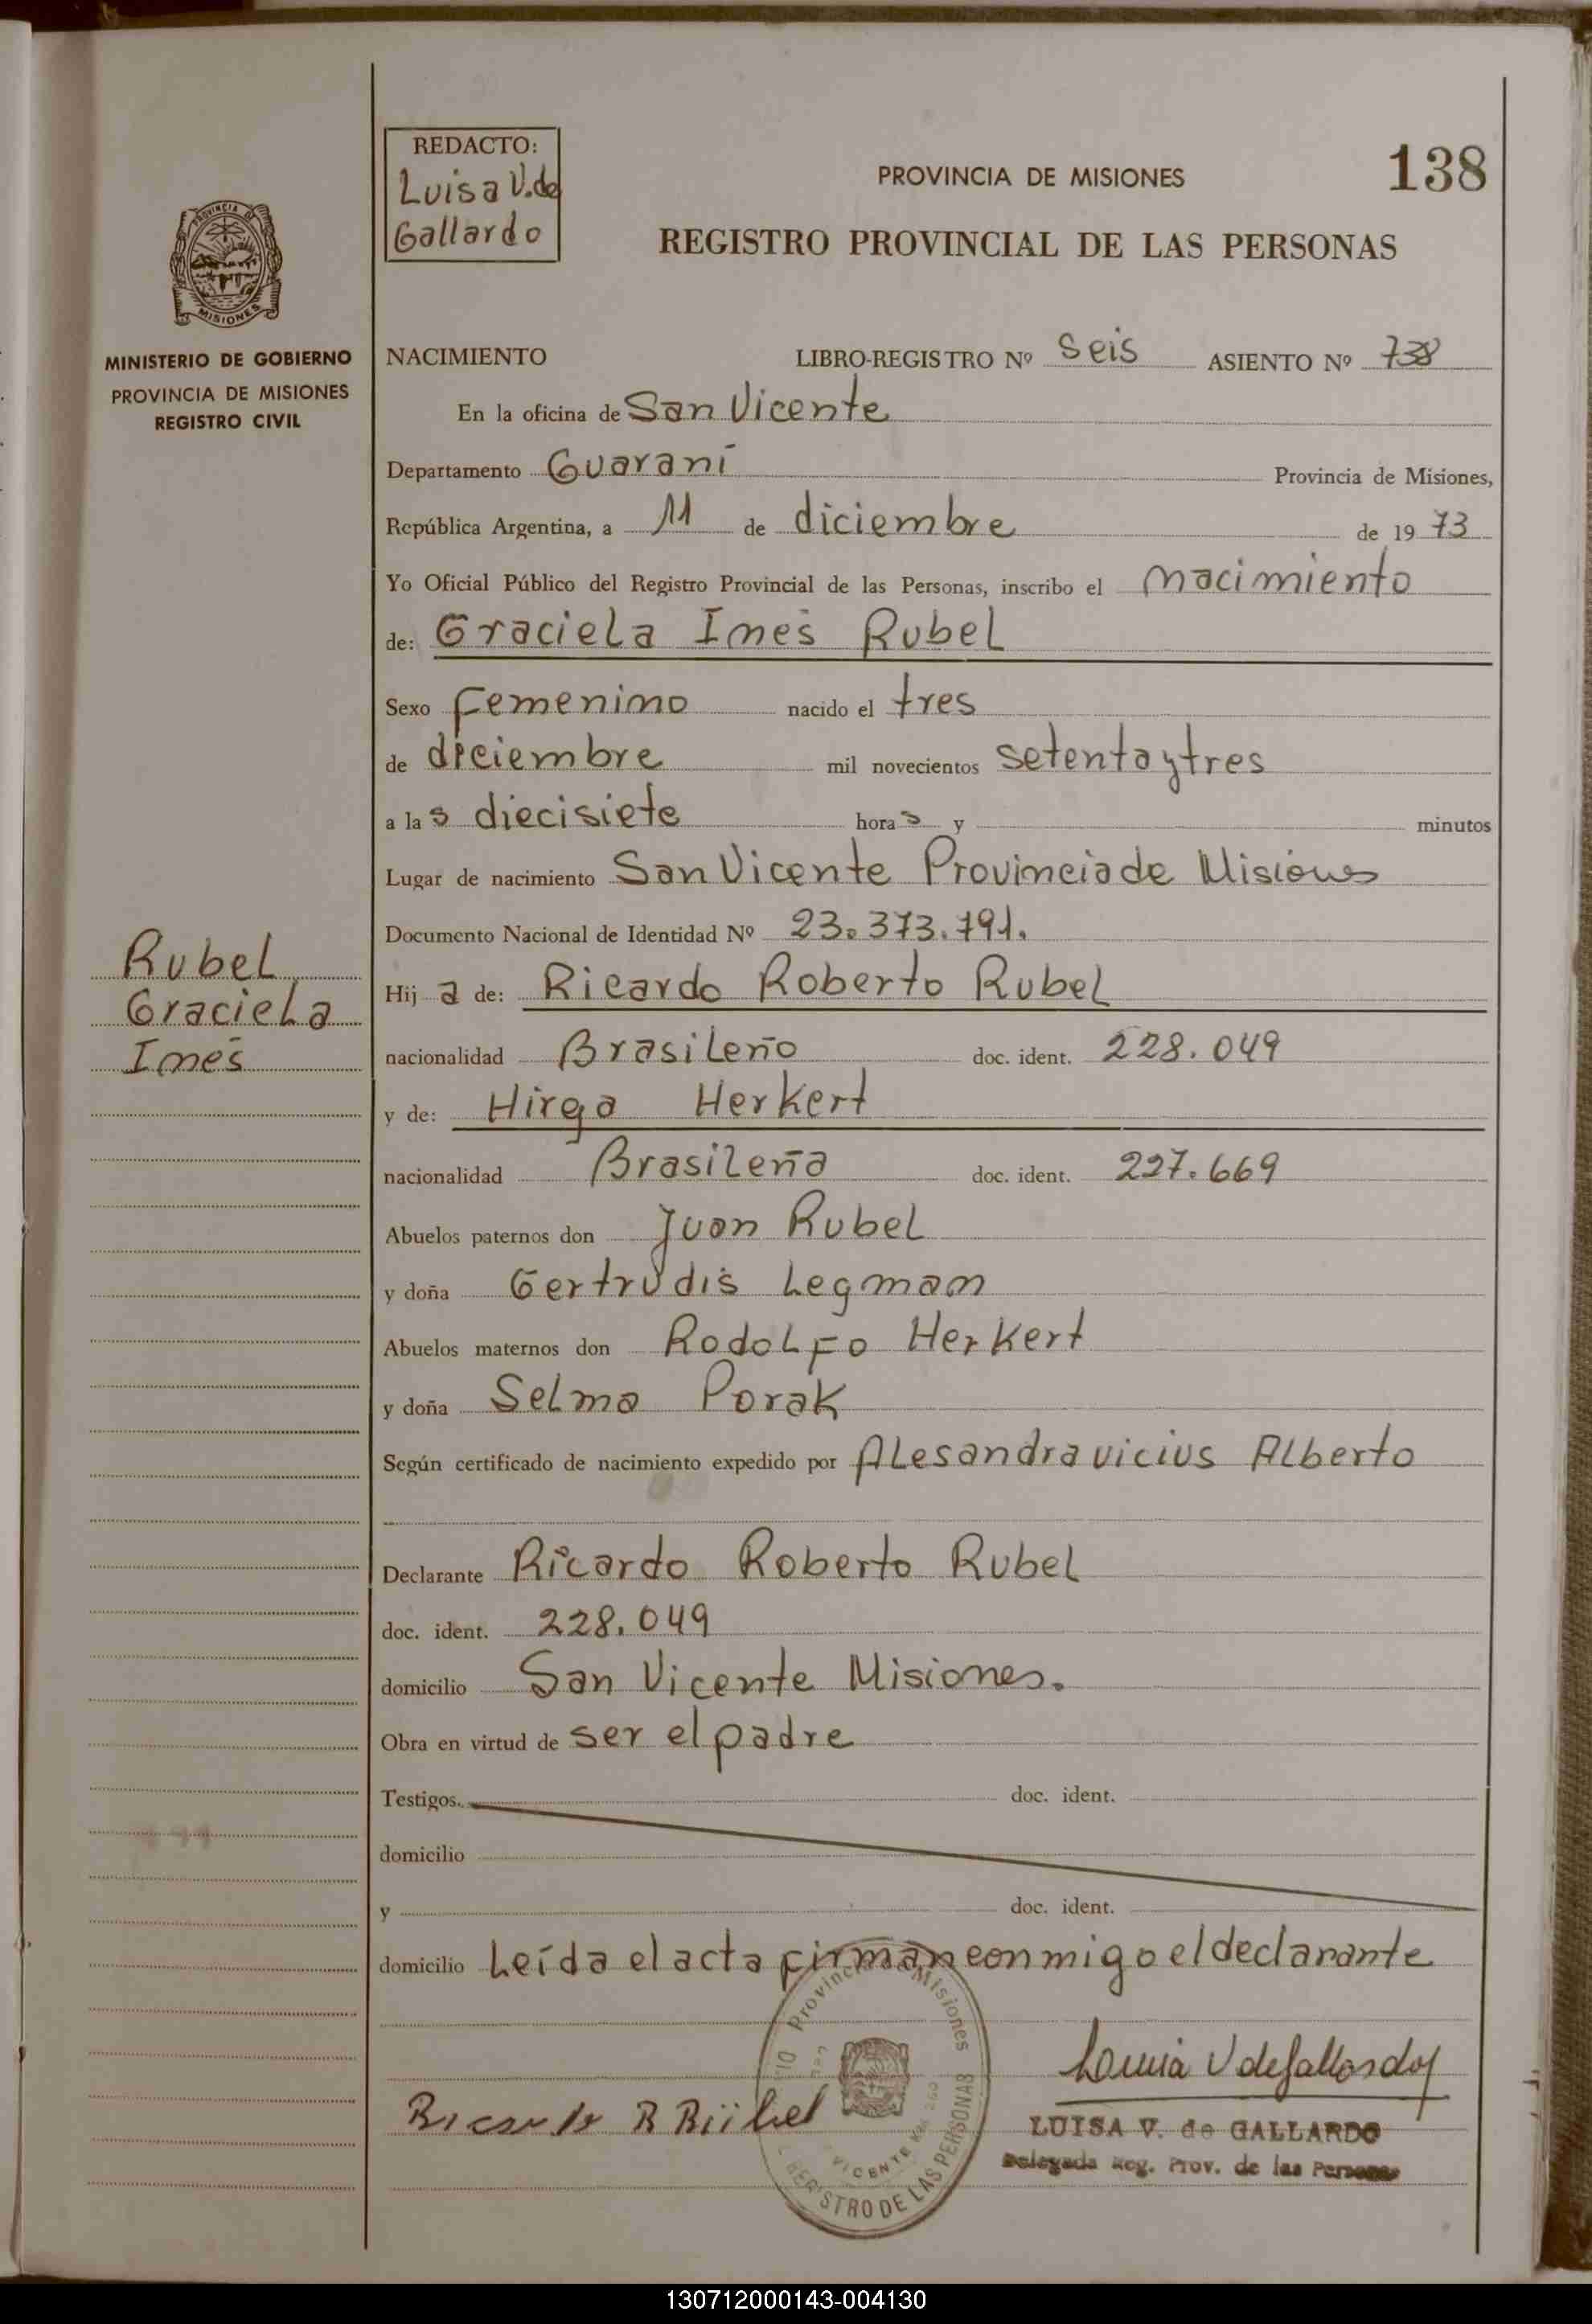 REDACTO:
Luisa V. de
Gallardo
PROVINCIA DE MISIONES
138
REGISTRO PROVINCIAL DE LAS PERSONAS
PROVINCIA DE
MISIONES
MINISTERIO DE GOBIERNO
PROVINCIA DE MISIONES
REGISTRO CIVIL
NACIMIENTO LIBRO-REGISTRO Nº Seis ASIENTO Nº 738
En la oficina de San Vicente
Departamento Guaraní Provincia de Misiones,
República Argentina, a 11 de diciembre de 1973
Yo Oficial Público del Registro Provincial de las Personas, inscribo el nacimiento
de: Graciela Inés Rubel
Sexo Femenino nacido el tres
de diciembre mil novecientos setenta y tres
a las diecisiete horas y minutos
Lugar de nacimiento San Vicente Provincia de Misiones
Documento Nacional de Identidad Nº 23.373.791.
Rubel
Graciela
Inés
Hija de: Ricardo Roberto Rubel
nacionalidad Brasileño doc. ident. 228.049
y de: Hirga Herkert
nacionalidad Brasileña doc. ident. 227.669
Abuelos paternos don Juan Rubel
y doña Gertrudis Legman
Abuelos maternos don Rodolfo Herkert
y doña Selma Porak
Según certificado de nacimiento expedido por Alesandravicius Alberto
Declarante Ricardo Roberto Rubel
doc. ident. 228.049
domicilio San Vicente Misiones.
Obra en virtud de ser el padre
Testigos doc. ident.
domicilio
y doc. ident.
domicilio Leída el acta firman conmigo el declarante
Provincia de Misiones
VICENTE
REGISTRO DE LAS PERSONAS
Luisa V de Gallardo
Ricardo R Rübel
LUISA V. de GALLARDO
Delegada Reg. Prov. de las Personas
130712000143-004130